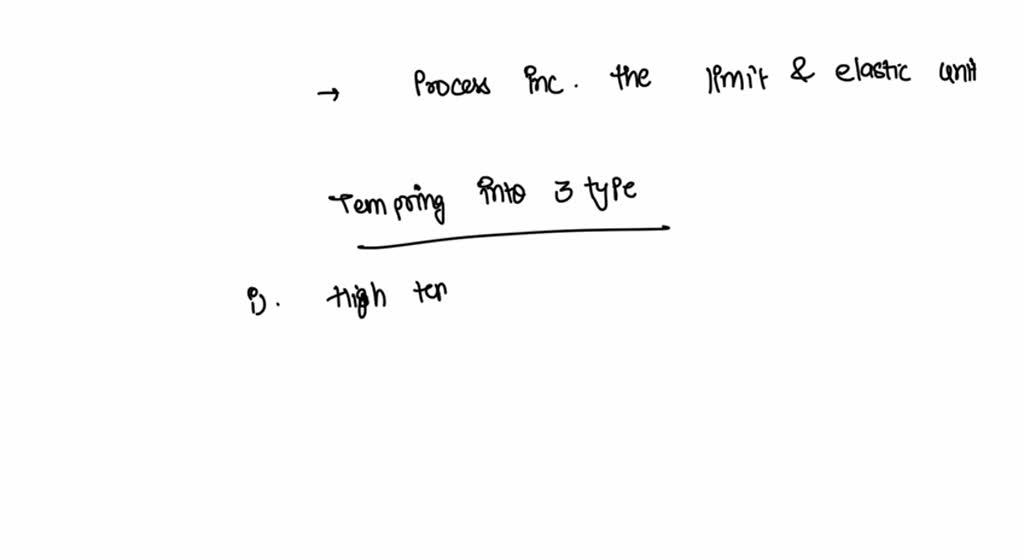 → Process inc. the limit & elastic unit
Tempring into 3 type
i). High ten